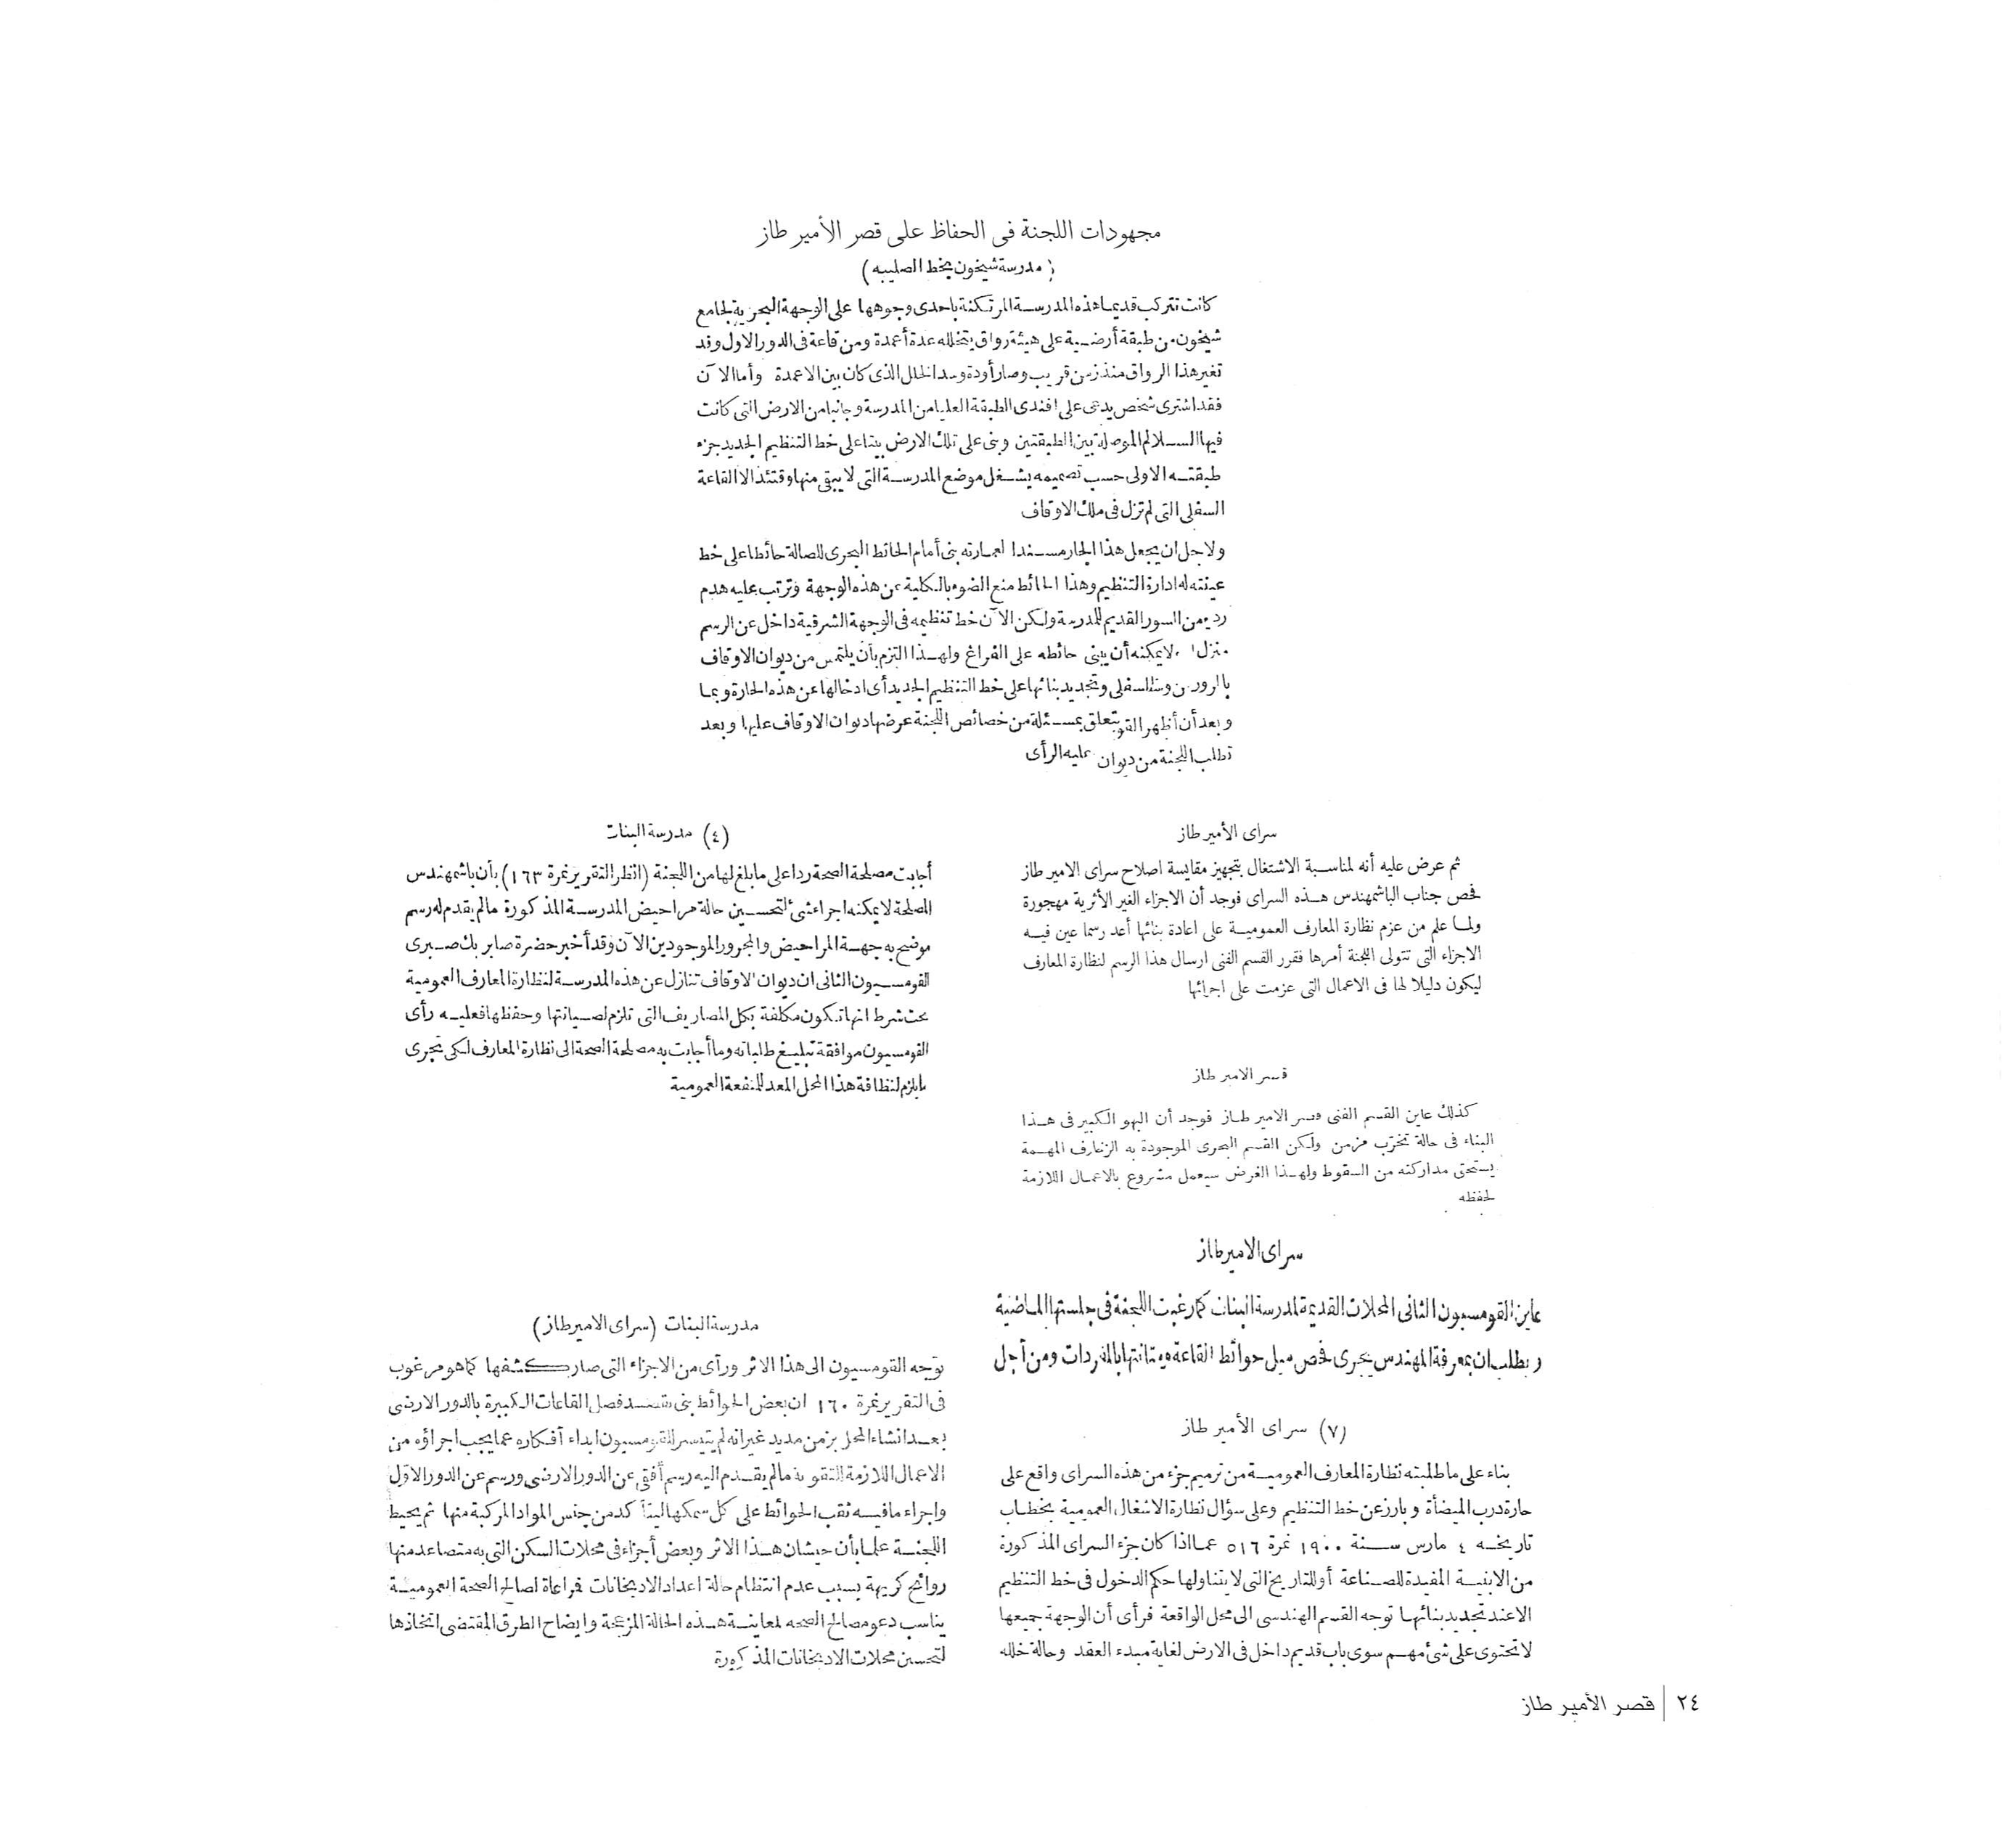 مجهودات اللجنة فى الحفاظ على قصر الأمير طاز
(مدرسة شيخون بخط الصليبه)
كانت تتركب قديما هذه المدرسة المرتكنة باحدى وجوهها على الوجهة البحرية لجامع
شيخون من طبقة أرضية على هيئة رواق يتخلله عدة أعمدة ومن قاعة فى الدور الاول وقد
تغير هذا الرواق منذ زمن قريب وصار أودة وسد الخلل الذى كان بين الاعمدة وأما الآن
فقد اشترى شخص يدعى على افندى الطبقة العليا من المدرسة وجانبا من الارض التى كانت
فيها السلالم الموصلة بين الطبقتين وبنى على تلك الارض بيتا على خط التنظيم الجديد جزء
طبقته الاولى حسب تصميمه يشغل موضع المدرسة التى لا يبقى منها وقتئذ الا القاعة
السفلى التى لم تزل فى ملك الاوقاف
ولاجل ان يجعل هذا الجار مسندا لعمارته بنى أمام الحائط البحرى للصالة حائطا على خط
عينته له ادارة التنظيم وهذا الحائط منع الضوء بالكلية عن هذه الوجهة وترتب عليه هدم
من السور القديم للمدرسة ولكن الآن خط تنظيمه فى الوجهة الشرقية داخل عن الرسم
منزل لا يمكنه أن يبنى حائطه على الفراغ ولهذا التزم بأن يلتمس من ديوان الاوقاف
السفلى وتجديد بنائها على خط التنظيم الجديد أى ادخالها عن هذه الحارة وبما
وبعد أن أظهر القو يتعلق بمسئلة من خصائص اللجنة عرضها ديوان الاوقاف عليها وبعد
تطلب اللجنة من ديوان عليه الرأى
سراى الأمير طاز
ثم عرض عليه أنه لمناسبة الاشتغال بتجهيز مقايسة اصلاح سراى الامير طاز
فحص جناب الباشمهندس هذه السراى فوجد أن الاجزاء الغير الأثرية مهجورة
ولما علم من عزم نظارة المعارف العمومية على اعادة بنائها أعد رسما عين فيه
الاجزاء التى تتولى اللجنة أمرها فقرر القسم الفنى ارسال هذا الرسم لنظارة المعارف
ليكون دليلا لها فى الاعمال التى عزمت على اجرائها
قصر الامير طاز
كذلك عاين القسم الفنى قصر الامير طاز فوجد أن البهو الكبير فى هذا
البناء فى حالة تخرّب مزمن ولكن القسم البحرى الموجودة به الزخارف المهمة
يستحق مداركته من السقوط ولهذا الغرض سيعمل مشروع بالاعمال اللازمة
لحفظه
سراى الامير طاز
عاين القومسيون الثانى المحلات القديمة لمدرسة البنات كما رغبت اللجنة فى جلستها الماضية
ويطلب ان بمعرفة المهندس يجرى فحص ميل حوائط القاعة ومتانتها بالمفردات ومن أجل
(٧) سراى الأمير طاز
بناء على ما طلبته نظارة المعارف العمومية من ترميم جزء من هذه السراى واقع على
حارة درب الميضأة وبارز عن خط التنظيم وعلى سؤال نظارة الاشغال العمومية بخطاب
تاريخه ٤ مارس سنة ١٩٠٠ نمرة ٥١٦ عما اذا كان جزء السراى المذكورة
من الابنية المفيدة للصناعة أو للتاريخ التى لا يتناولها حكم الدخول فى خط التنظيم
الا عند تجديد بنائها توجه القسم الهندسى الى محل الواقعة فرأى أن الوجهة جميعها
لا تحتوى على شئ مهم سوى باب قديم داخل فى الارض لغاية مبدء العقد وحالة خلله
(٤) مدرسة البنات
أجابت مصلحة الصحة ردا على ما بلغ لها من اللجنة (انظر التقرير نمرة ١٦٣) بأن باشمهندس
المصلحة لا يمكنه اجراء شئ لتحسين حالة مراحيض المدرسة المذكورة مالم يقدم له رسم
موضح به جهة المراحيض والمجرور الموجودين الآن وقد أخبر حضرة صابر بك صبرى
القومسيون الثانى ان ديوان الاوقاف تنازل عن هذه المدرسة لنظارة المعارف العمومية
تحت شرط انها تكون مكلفة بكل المصاريف التى تلزم لصيانتها وحفظها فعليه رأى
القومسيون موافقة تبليغ طلباته وما أجابت به مصلحة الصحة الى نظارة المعارف لكى تجرى
ما يلزم لنظافة هذا المحل المعد للمنفعة العمومية
مدرسة البنات (سراى الامير طاز)
توجه القومسيون الى هذا الاثر ورأى من الاجزاء التى صار كشفها كما هو مرغوب
فى التقرير نمرة ١٦٠ ان بعض الحوائط بنى بقصد فصل القاعات الكبيرة بالدور الارضى
بعد انشاء المحل بزمن مديد غير انه لم يتيسر للقومسيون ابداء أفكاره عما يجب اجراؤه من
الاعمال اللازمة للتقوية مالم يقدم اليه رسم أفقى عن الدور الارضى ورسم عن الدور الاوّل
واجراء ما فيه ثقب الحوائط على كل سمكها ليتأكد من جنس المواد المركبة منها ثم يحيط
اللجنة علما بأن حيشان هذا الاثر وبعض أجزاء فى محلات السكن التى به متصاعد منها
روائح كريهة بسبب عدم انتظام حالة اعداد الادبخانات فمراعاة لصالح الصحة العمومية
يناسب دعو مصالح الصحه لمعاينة هذه الحالة المزعجة وايضاح الطرق المقتضى اتخاذها
لتحسين محلات الادبخانات المذكورة
٢٤ | قصر الأمير طاز